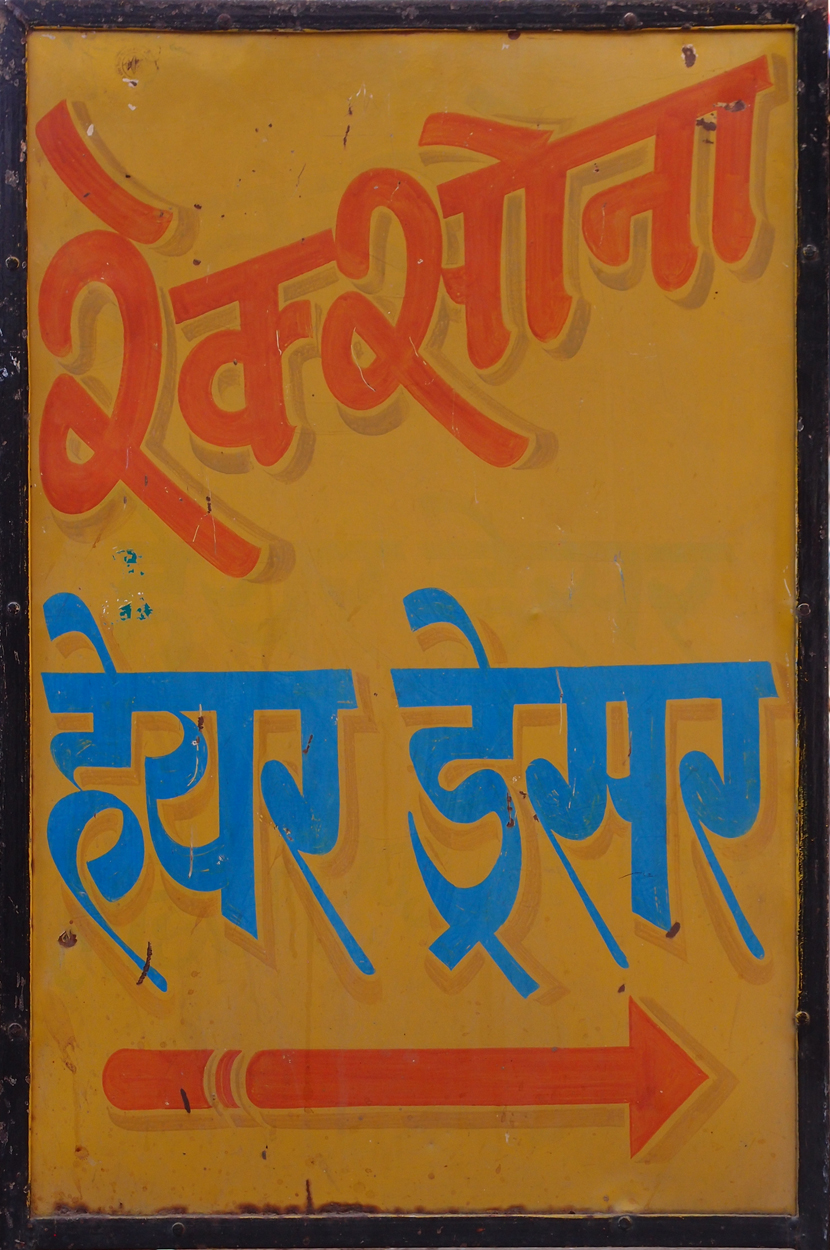 रेक्सोना
हेयर ड्रेसर